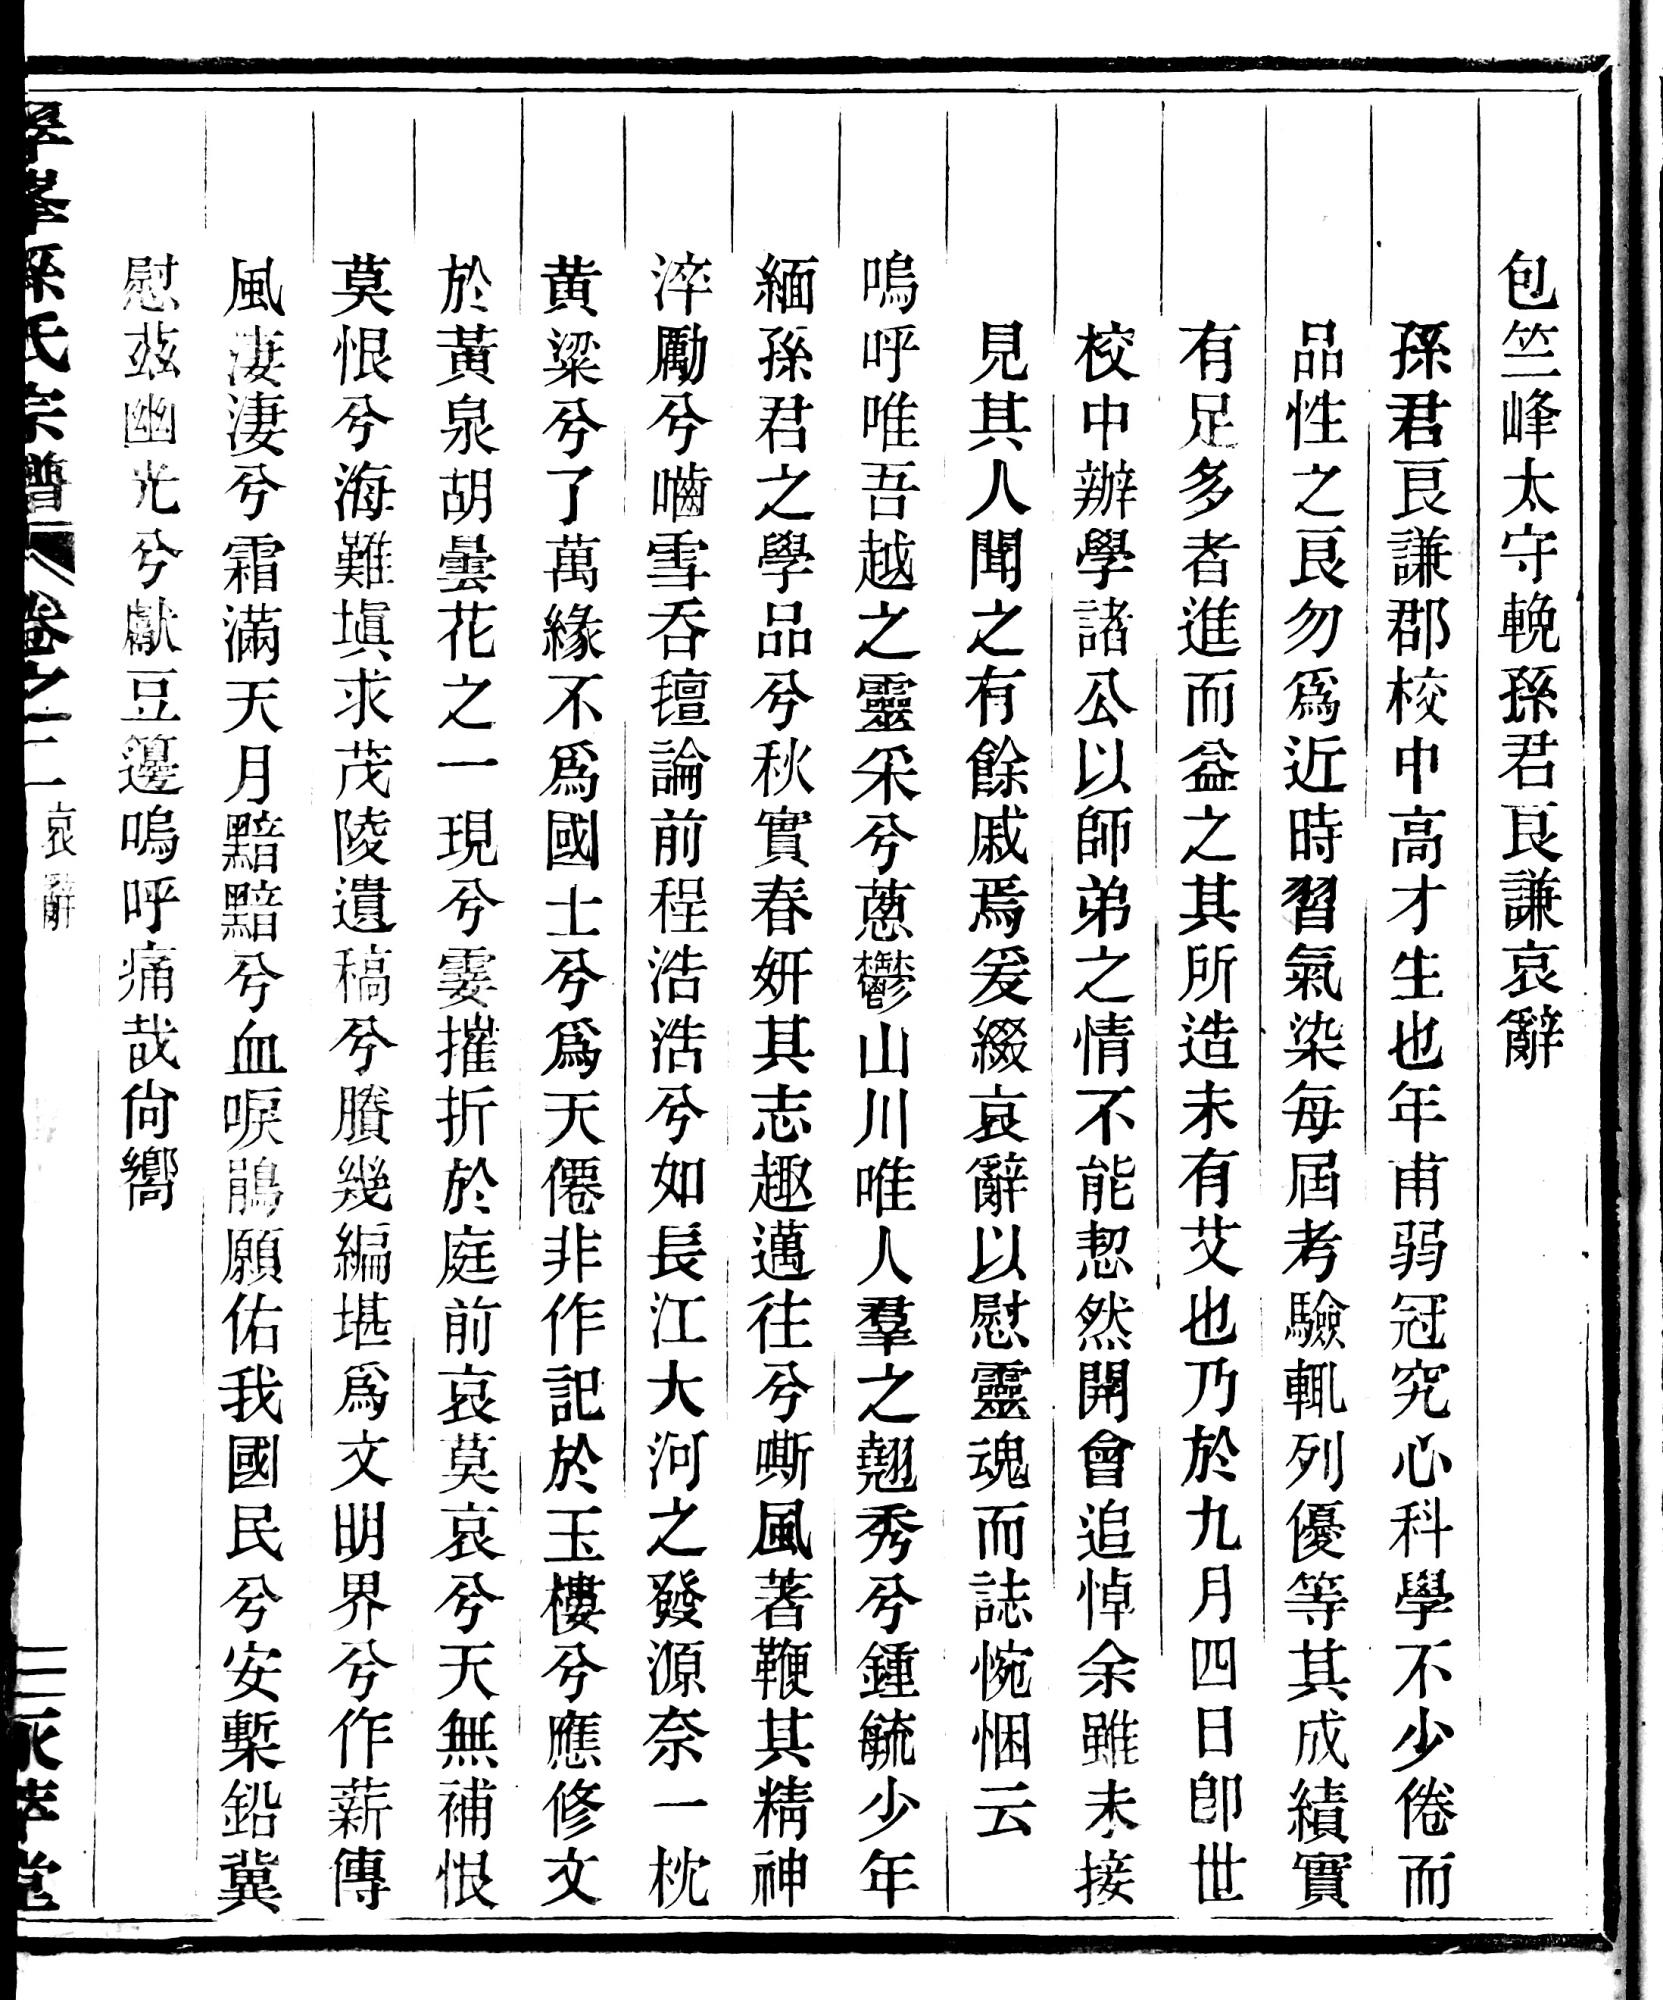 包竺峰太守輓孫君良謙哀辭
孫君良謙郡校中高才生也年甫弱冠究心科學不少倦而
品性之良勿爲近時習氣染每屆考驗輒列優等其成績實
有足多者進而益之其所造未有艾也乃於九月四日卽世
校中辦學諸公以師弟之情不能恝然開會追悼余雖未接
見其人聞之有餘戚焉爰綴哀辭以慰靈魂而誌惋悃云
嗚呼唯吾越之靈采兮蔥鬱山川唯人羣之翹秀兮鍾毓少年
緬孫君之學品兮秋實春妍其志趣邁往兮嘶風著鞭其精神
淬勵兮嚙雪吞氊論前程浩浩兮如長江大河之發源奈一枕
黄粱兮了萬緣不爲國士兮爲天僊非作記於玉樓兮應修文
於黃泉胡曇花之一現兮霎摧折於庭前哀莫哀兮天無補恨
莫恨兮海難塡求茂陵遺稿兮賸幾編堪爲文明界兮作薪傳
風淒淒兮霜滿天月黯黯兮血唳鵑願佑我國民兮安槧鉛冀
慰茲幽光兮獻豆籩嗚呼痛哉尙嚮
孫氏宗譜 卷之二 哀辭 三 永萃堂